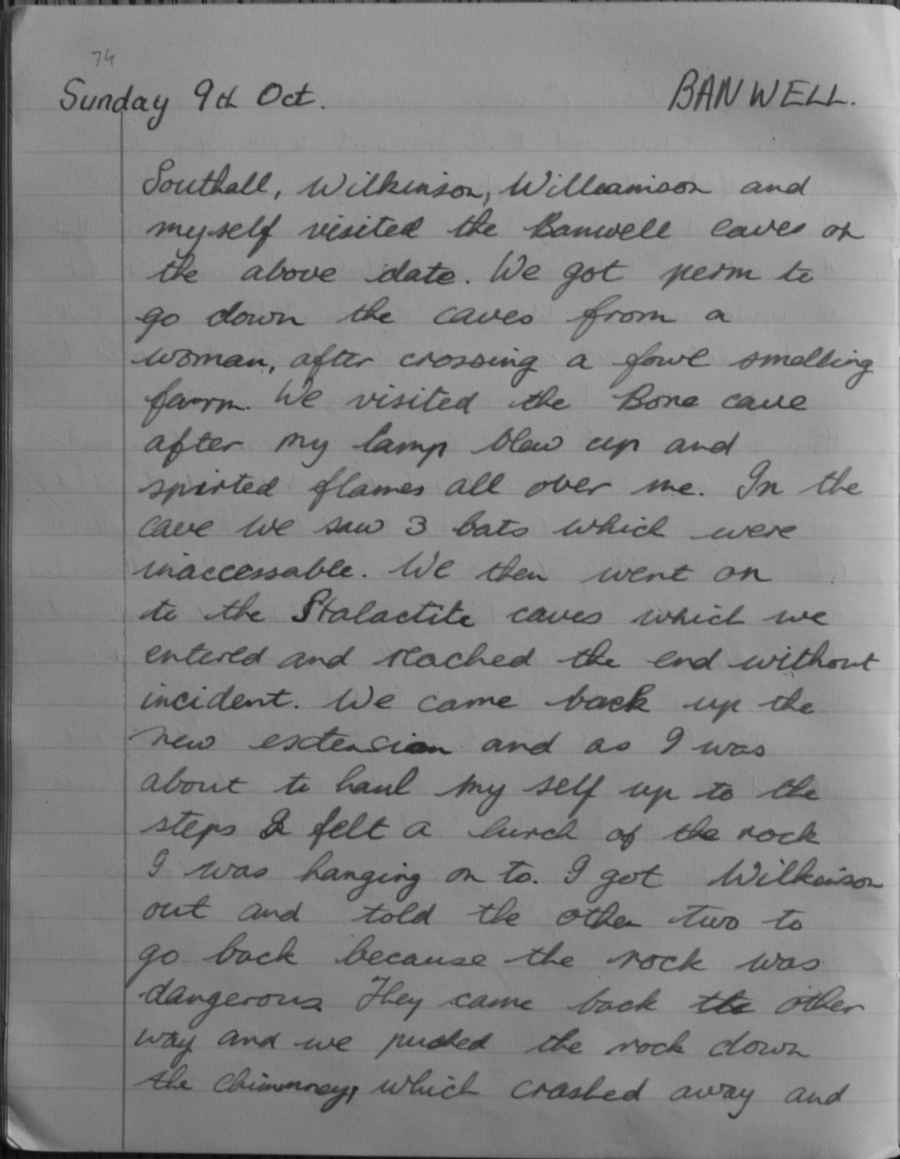 74
Sunday 9th Oct. BANWELL.
Southall, Wilkinson, Williamson and
myself visited the Banwell caves on
the above date. We got perm to
go down the caves from a
woman, after crossing a fowl smelling
farm. We visited the Bone cave
after my lamp blew up and
spirted flames all over me. In the
cave we saw 3 bats which were
inaccessable. We then went on
to the Stalactite caves which we
entered and reached the end without
incident. We came back up the
new extension and as I was
about to haul my self up to the
steps I felt a lurch of the rock
I was hanging on to. I got Wilkinson
out and told the other two to
go back because the rock was
dangerous. They came back the other
way and we pushed the rock down
the chimmney, which crashed away and